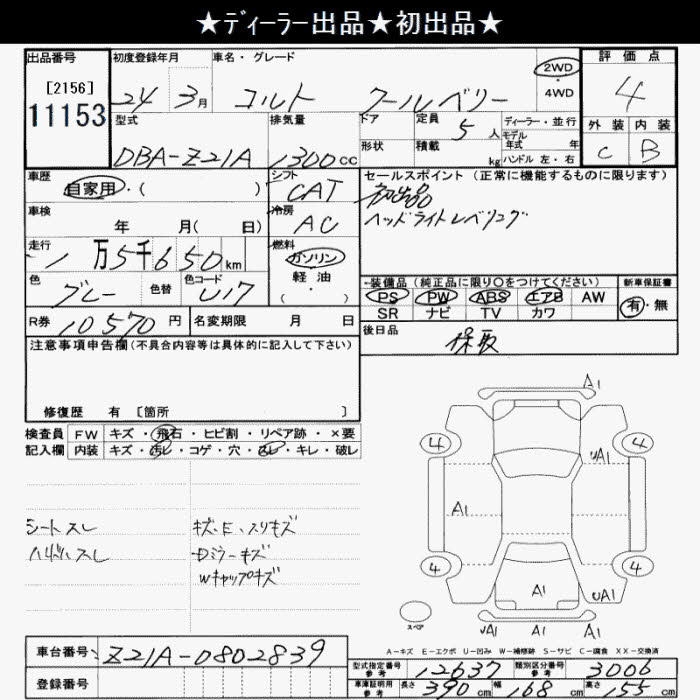 ★ディーラー出品★初出品★
出品番号 [2156] 11153
初度登録年月 24 3月
車名・グレード コルト クールベリー
2WD・4WD
評価点 4
外装 C 内装 B
型式 DBA-Z21A
排気量 1300cc
ドア 形状
定員 5人
積載 kg
ディーラー・並行
モデル年式 年
ハンドル 左・右
車歴 自家用・( )
シフト CAT
セールスポイント (正常に機能するものに限ります)
初出品
ヘッドライトレベリング
車検 年 月( 日)
冷房 AC
走行 1万5千650km
燃料 ガソリン 軽油 ( ・ )
色 グレー 色替 色コード U17
装備品 (純正品に限り○をつけてください)
PS PW ABS エアB AW
SR ナビ TV カワ
新車保証書 有・無
R券 10570円
名変期限 月 日
後日品 保取
注意事項申告欄 (不具合内容等は具体的に記入して下さい)
修復歴 有 [箇所 ]
検査員 FW キズ・飛石・ヒビ割・リペア跡・×要
記入欄 内装 キズ・汚レ・コゲ・穴・スレ・キレ・破レ
シートスレ
ハンドルスレ
キズ、E、スリキズ
Dミラーキズ
Wキャップキズ
A1
4 4
uA1
A1
4 4
A1 uA1
uA1 A1 A1
スペア
A-キズ E-エクボ U-凹み W-補修跡 S-サビ C-腐食 XX-交換済
車台番号 Z21A-0802839
登録番号
型式指定番号 参考 12637
類別区分番号 参考 3006
車庫証明用 参考 長さ 390cm 幅 168cm 高さ 155cm